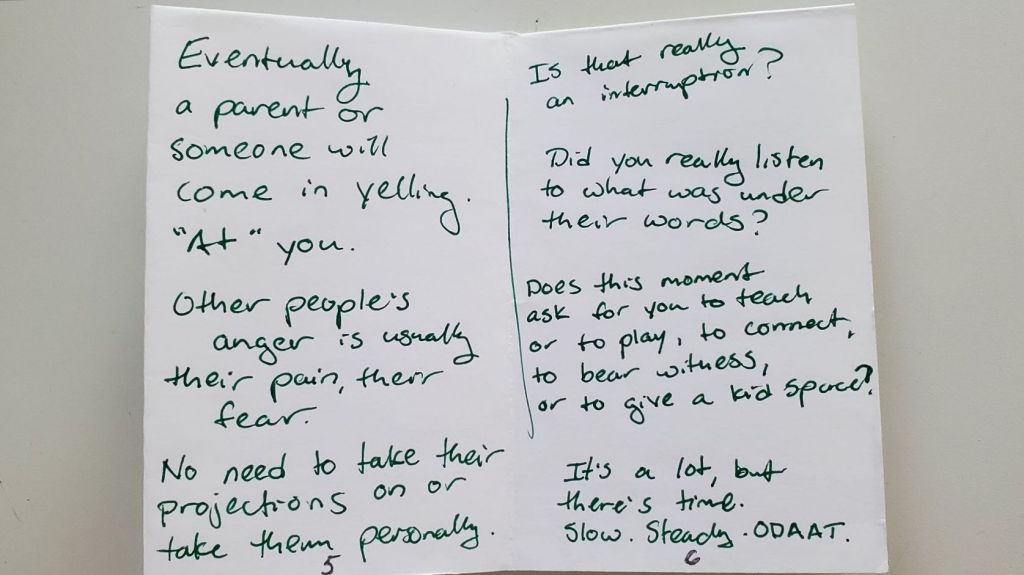 Eventually
a parent or
someone will
come in yelling.
"At" you.
Other people's
anger is usually
their pain, their
fear.
No need to take their
projections on or
take them personally.
5
Is that really
an interruption?
Did you really listen
to what was under
their words?
Does this moment
ask for you to teach
or to play, to connect,
to bear witness,
or to give a kid space?
It's a lot, but
there's time.
Slow. Steady. ODAAT.
6